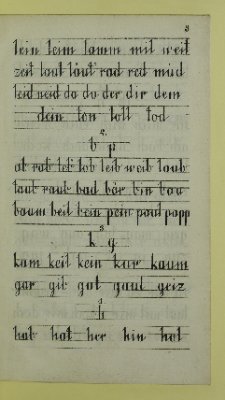 3
lein leim lamm mit weit
zeit laut läut rad red müd
leid neid da du der dir dem
dein ton toll tod
2.
b p
ob rab lob leib weib laub
laut raub bad bär bin bau
baum beil bein pein paul papp
3
k g
kam keil kein kur kaum
gar gib gut gaul geiz
4
h
hab hat her hin hol